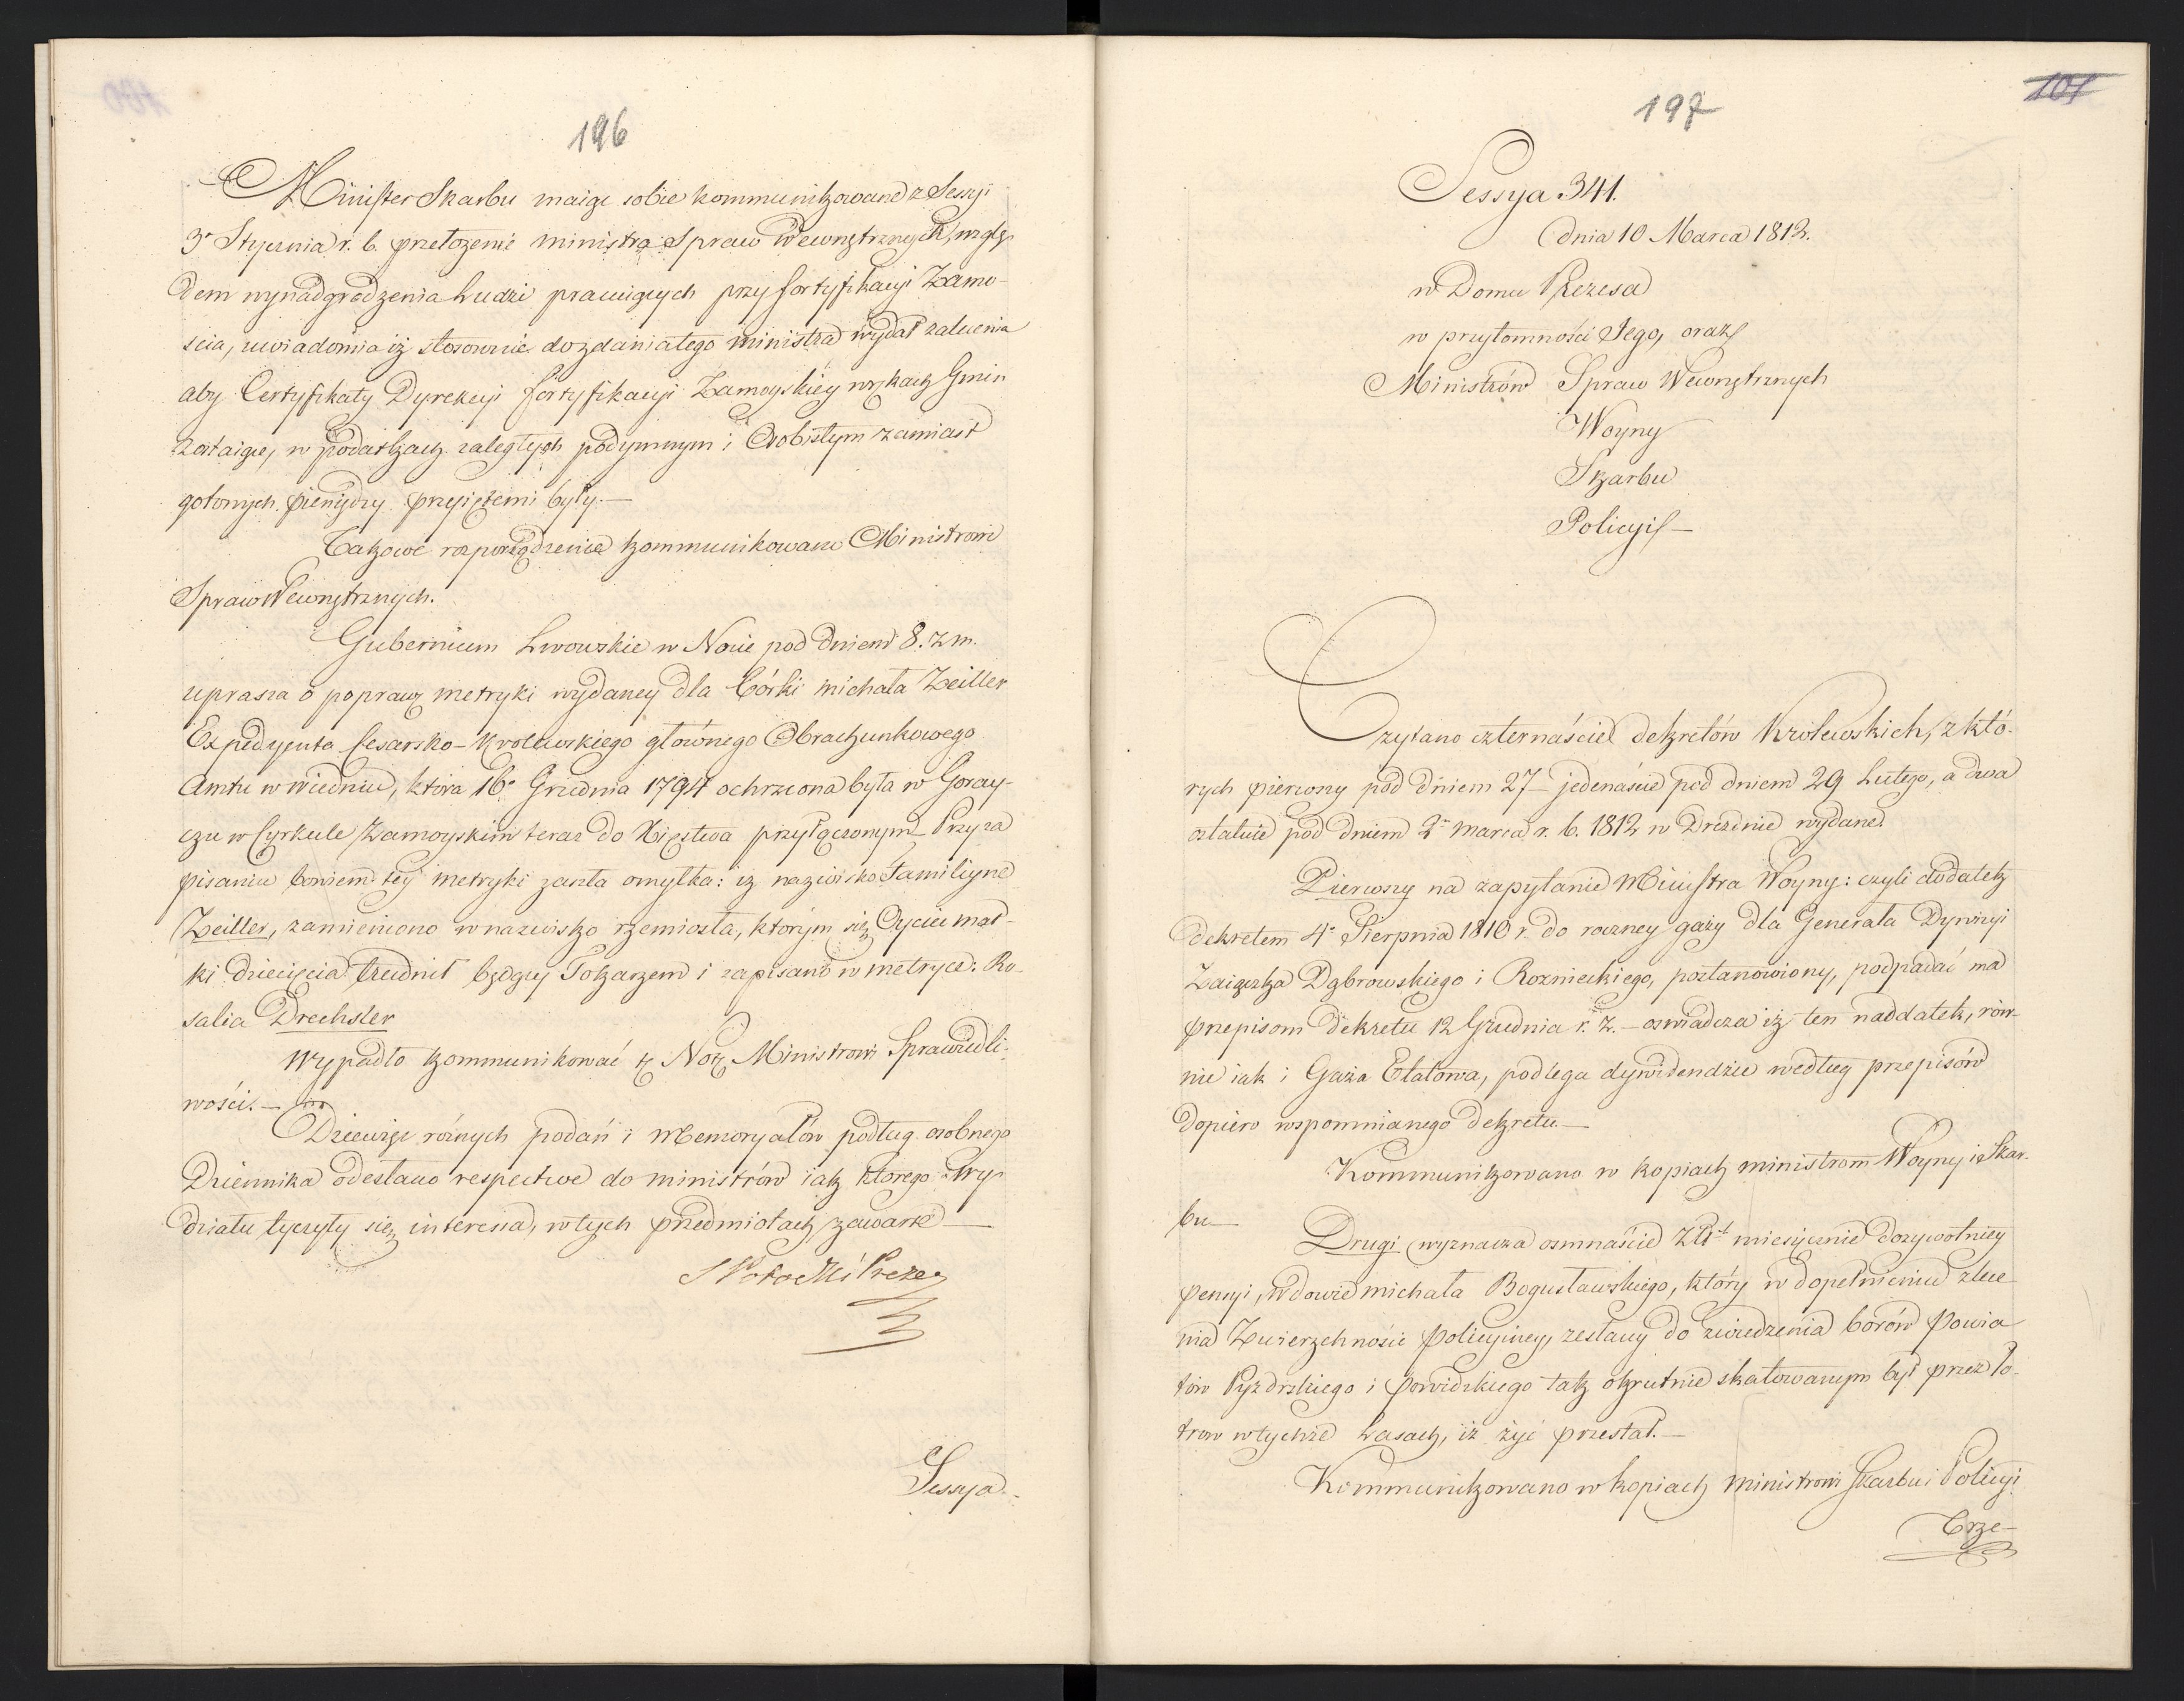 196
Minister Skarbu maiąc sobie kommunikowane z Sessyi
3º Stycznia r. b. przełożenie ministra Spraw Wewnętrznych, wzglę-
dem wynadgrodzenia Ludzi pracuiących przy fortyfikacyi Zamo-
ścia, uwiadomia iż stosownie do zdania tego ministra wydał zalecenia
aby Certyfikaty Dyrekcyi fortyfikacyi Zamoyskiey w ręKach Gmin
zostaiące, w podatkach zaległych podymnym i Osobistym zamiast
gotowych pieniędzy przyiętemi były.—
Takowe rozporządzenie kommunikowano Ministrowi
Spraw Wewnętrznych.
Gubernium Lwowskie w Nocie pod dniem 8. z. m.
uprasza o poprawę metryki wydaney dla Córki michała Zeiller
Expedyenta Cesarsko-Krolewskiego głównego Obrachunkowego
Amtu w wiedniu, która 16º Grudnia 1794 ochrzcona była w Goray-
czu w Cyrkule Zamoyskim teraz do Xięstwa przyłączonym — Przy za
pisaniu bowiem tey metryki zaszła omyłka: iż nazwisko Familiyne
Zeiller, zamieniono w nazwisko rzemiosła, którym się Oyciec mat-
ki dziecięcia trudnił będący Tokarzem i zapisano w metryce: Ro-
salia Drechsler
Wypadło kommunikować tę Notę Ministrowi Sprawiedli-
wości.—
Dziewięć róznych podań i Memoryałów podług osobnego
Dziennika odesłano respective do ministrów iak którego Wy-
działu tyczyły się interessa, w tych przedmiotach zawarte —
S Potocki Prezes
Sessya.
101
197
Sessya 341.
dnia 10 Marca 1812.
w Domu Prezesa
w przytomności Jego, oraz
Ministrów Spraw Wewnętrznych
Woyny
Skarbu
Policyi —
Czytano czternaście dekretów Krolewskich, z któ-
rych pierwszy pod dniem 27 — jedenaście pod dniem 29 Lutego, a dwa
ostatnie pod dniem 2º marca r. b. 1812 w Dreźnie wydane.
Pierwszy na zapytanie Ministra Woyny: czyli dodatek
dekretem 4º Sierpnia 1810 r. do roczney gaży dla Generała Dywizyi
Zaiączka Dąbrowskiego i Roznieckiego, postanowiony, podpadać ma
przepisom dekretu 12 Grudnia r. z. — oswiadcza iż ten naddatek, rów-
nie iak i Gaża Etatowa, podlega dywidendzie według przepisów
dopiero wspomnianego dekretu.—
Kommunikowano w kopiach ministrom Woyny i Skar-
bu —
Drugi wyznacza osmnaście Złt miesięcznie dożywotniey
pensyi, wdowie michała Bogusławskiego, który w dopełnieniu zlece
nia Zwierzchności policyiney, zesłany do zwiedzenia borów Powia
tów Pyzdrskiego i powidzkiego tak okrutnie skatowanym był przez ło-
trow w tychże Lasach, iż żyć przestał.—
Kommunikowano w kopiach ministrowi Skarbu i Policyi
Trze-